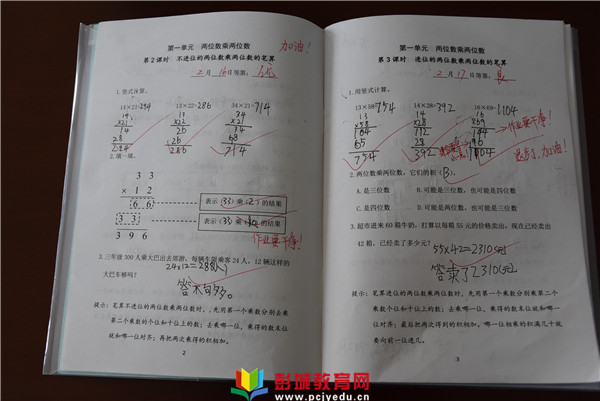 第一单元 两位数乘两位数
加油!
第2课时 不进位的两位数乘两位数的笔算
2月16日等第:
1.竖式计算。
14×21=294 13×22=286 34×21=714
14 13 34
×21 ×22 ×21
14 26 34
28 26 68
294 286 714
2.填一填。
3 3
× 1 2
6 6 表示(33)乘(2)的结果
3 3 表示(33)乘(10)的结果
3 9 6
作业要干净!
3.三年级300人乘大巴出去郊游,每辆车限乘客24人,12辆这样的
大巴车够吗?
24×12=288(人)
答:不够。
提示:笔算不进位的两位数乘两位数时,先用第一个乘数分别去乘
第二个乘数的个位和十位上的数;去乘哪一位,乘得的数末位
就和哪一位对齐;再把两次乘得的积相加。
2
第一单元 两位数乘两位数
第3课时 进位的两位数乘两位数的笔算
2月17日等第:良
1.用竖式计算。
13×58=754 14×28=392 16×69=1104
13 14 16
×58 ×28 ×69
104 112 144
65 28 96
754 392 1104
作业要干净!
退步了,加油!
2.两位数乘两位数,它们的积(B)。
A.是三位数 B.可能是三位数,也可能是四位数
C.是四位数 D.可能是两位数,也可能是三位数
3.超市进来60箱牛奶,打算以每箱55元的价格卖出,现在已经卖出
42箱,已经卖了多少元?
55×42=2310(元)
答:卖了2310元。
提示:笔算进位的两位数乘两位数时,先用第一个乘数分别去乘第二
个乘数个位和十位上的数;去乘哪一位,乘得的数末位就和哪一
位对齐;最后把两次得到的积相加。哪一位相乘的积满几十就
要向前一位进几。
3
彭城教育网
www.pcjyedu.cn